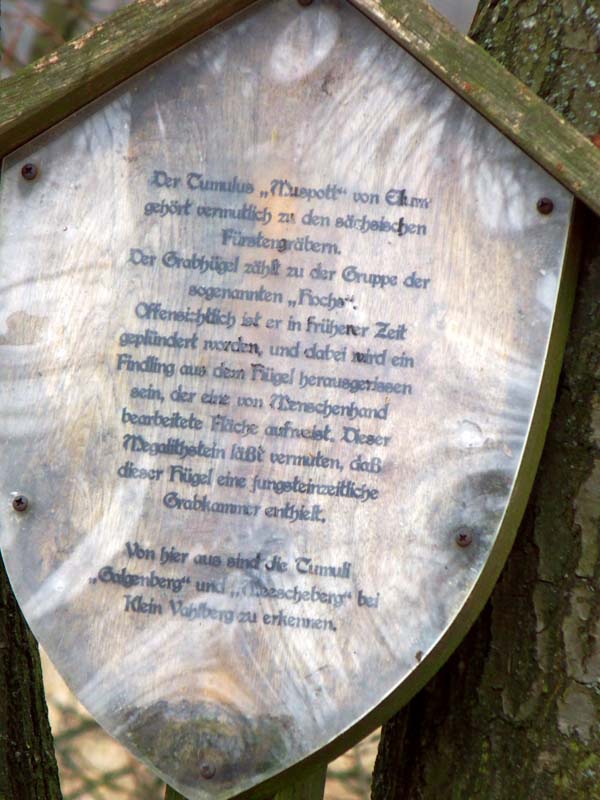 Der Tumulus „Muspott“ von Eilum
gehört vermutlich zu den sächsischen
Fürstengräbern.
Der Grabhügel zählt zu der Gruppe der
sogenannten „Hochs“.
Offensichtlich ist er in früherer Zeit
geplündert worden, und dabei wird ein
Findling aus dem Hügel herausgerissen
sein, der eine von Menschenhand
bearbeitete Fläche aufweist. Dieser
Megalithstein läßt vermuten, daß
dieser Hügel eine jungsteinzeitliche
Grabkammer enthielt.
Von hier aus sind die Tumuli
„Galgenberg“ und bei
Klein Vahlberg zu erkennen.